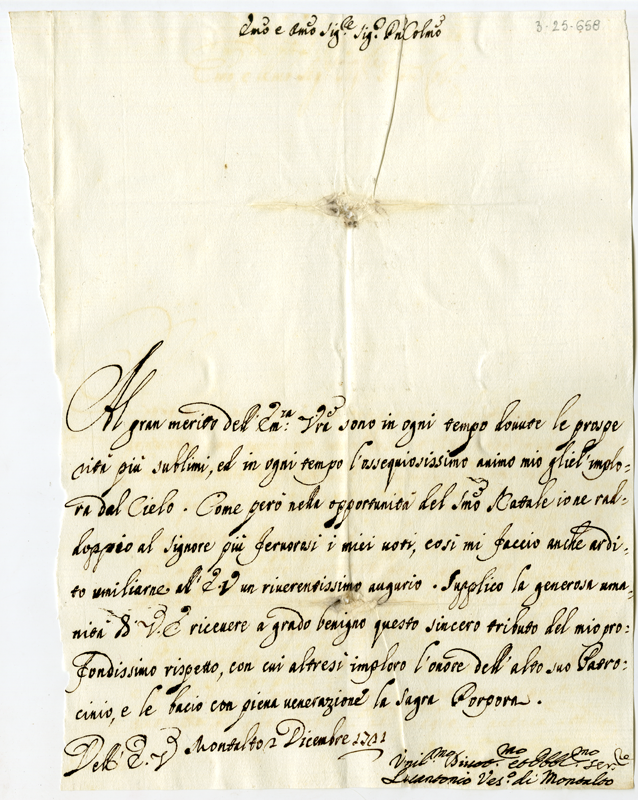 Emo e Rmo Sigre Sigr Pn Colmo
3-25-658
Al gran merito dell'Emza Vra sono in ogni tempo dovute le prospe
rità più sublimi, ed in ogni tempo l'ossequiosissimo animo mio gliel'implo-
ra dal Cielo. Come però nella opportunità del Smo Natale io ne rad-
doppio al Signore più fervorosi i miei voti, così mi faccio anche ardi-
to umiliarne all'E.V. un riverentissimo augurio. Supplico la generosa uma-
nità di V.E. ricevere a grado benigno questo sincero tributo del mio pro-
fondissimo rispetto, con cui altresì imploro l'onore dell'alto suo Patro-
cinio, e le bacio con piena venerazione la sagra Porpora.
Dell'E.V. Montalto 2 Dicembre 1731
Umilmo Divotmo ed Obblmo servre
Lucantonio Veso di Montalto